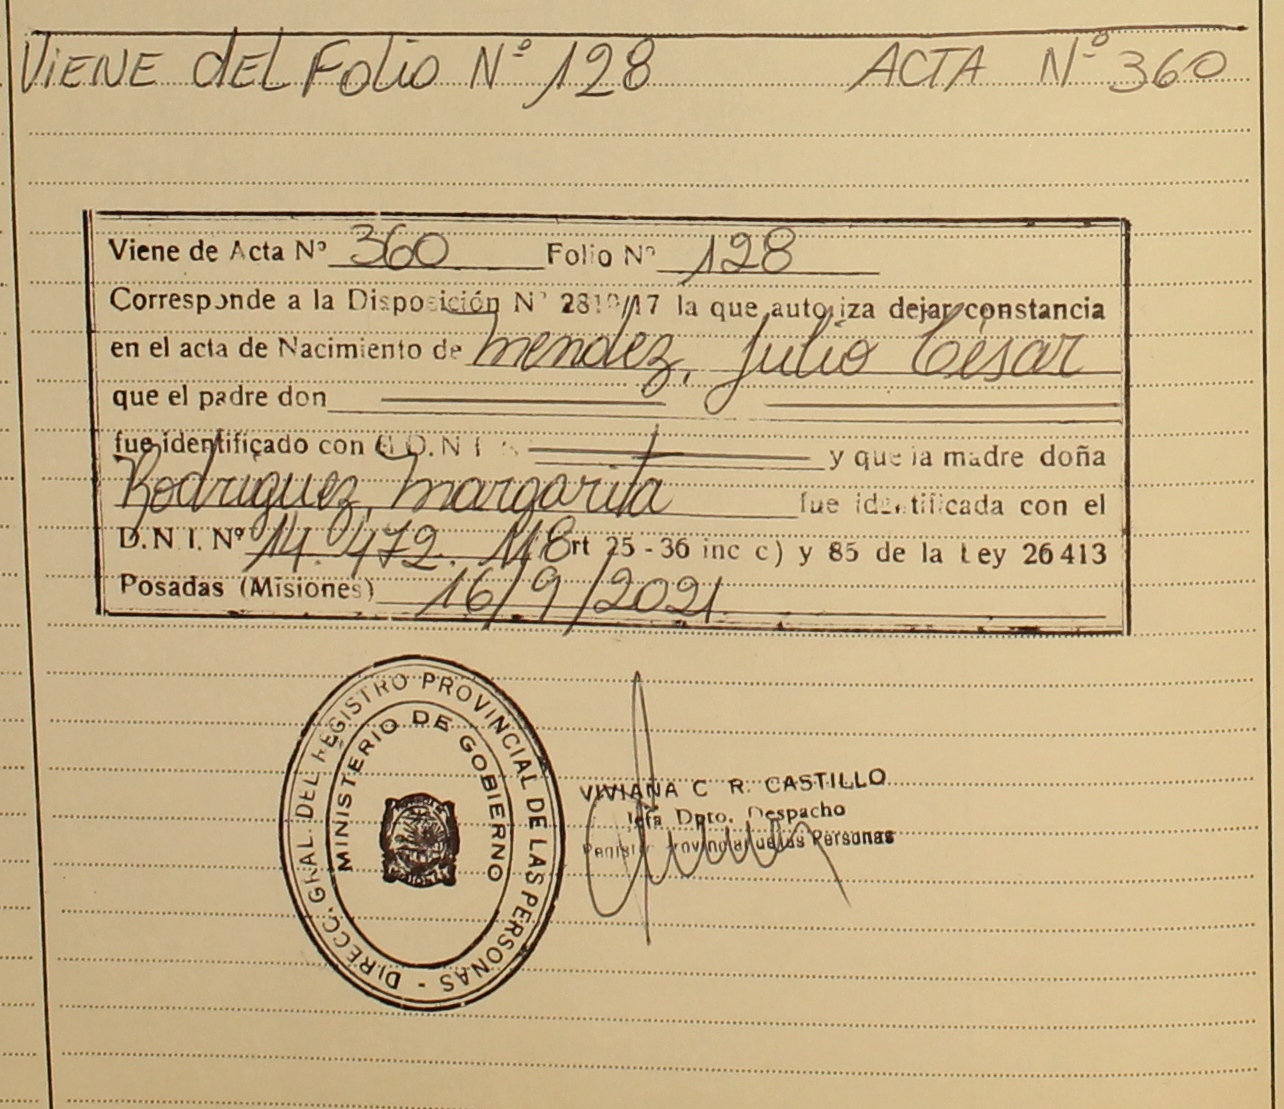 VIENE dEL FOLIO Nº 128 ACTA Nº 360
Viene de Acta Nº 360 Folio Nº 128
Corresponde a la Disposición Nº /17 la que autoriza dejar constancia
en el acta de Nacimiento de Mendez, Julio César
que el padre don
fue identificado con D.N.I. y que la madre doña
Rodriguez, Margarita fue identificada con el
D.N.I. Nº 14.472.118 rt 25-36 inc c) y 85 de la Ley 26413
Posadas (Misiones) 16/9/2021
DIRECC. GRAL. DEL REGISTRO PROVINCIAL DE LAS PERSONAS -
MINISTERIO DE GOBIERNO
VIVIANA C R. CASTILLO
Jefa Dpto. Despacho
Registro Provincial de las Personas